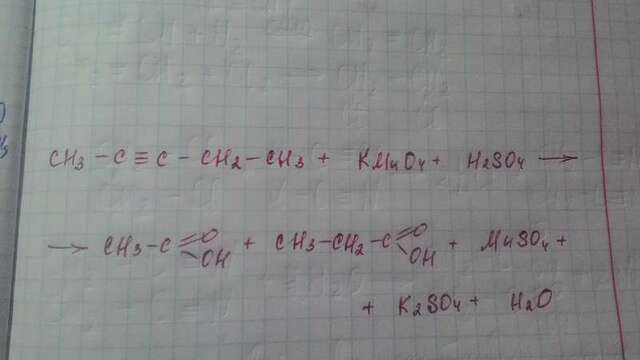 CH3 - C ≡ C - CH2 - CH3 + KMnO4 + H2SO4 →
→ CH3 - C =O -OH + CH3 - CH2 - C =O -OH + MnSO4 +
+ K2SO4 + H2O